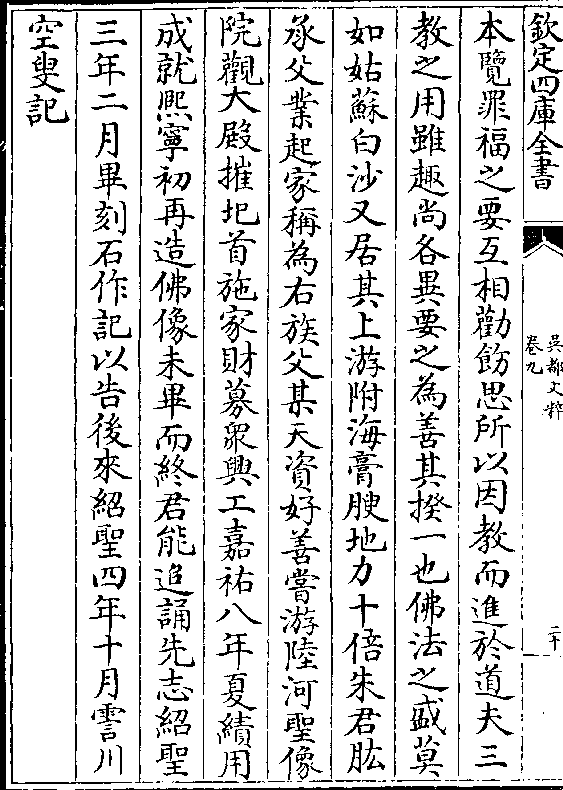 欽定四庫全書
吳都文粹
卷九
二十
本覽罪福之要互相勸飭思所以因教而進於道夫三
教之用雖趣尚各異要之為善其揆一也佛法之盛莫
如姑蘇白沙又居其上游附海膏腴地力十倍朱君肱
承父業起家稱為右族父某天資好善嘗游陸河聖像
院觀大殿摧圮首施家財募眾興工嘉祐八年夏績用
成就熙寧初再造佛像未畢而終君能追誦先志紹聖
三年二月畢刻石作記以告後來紹聖四年十月霅川
空叟記